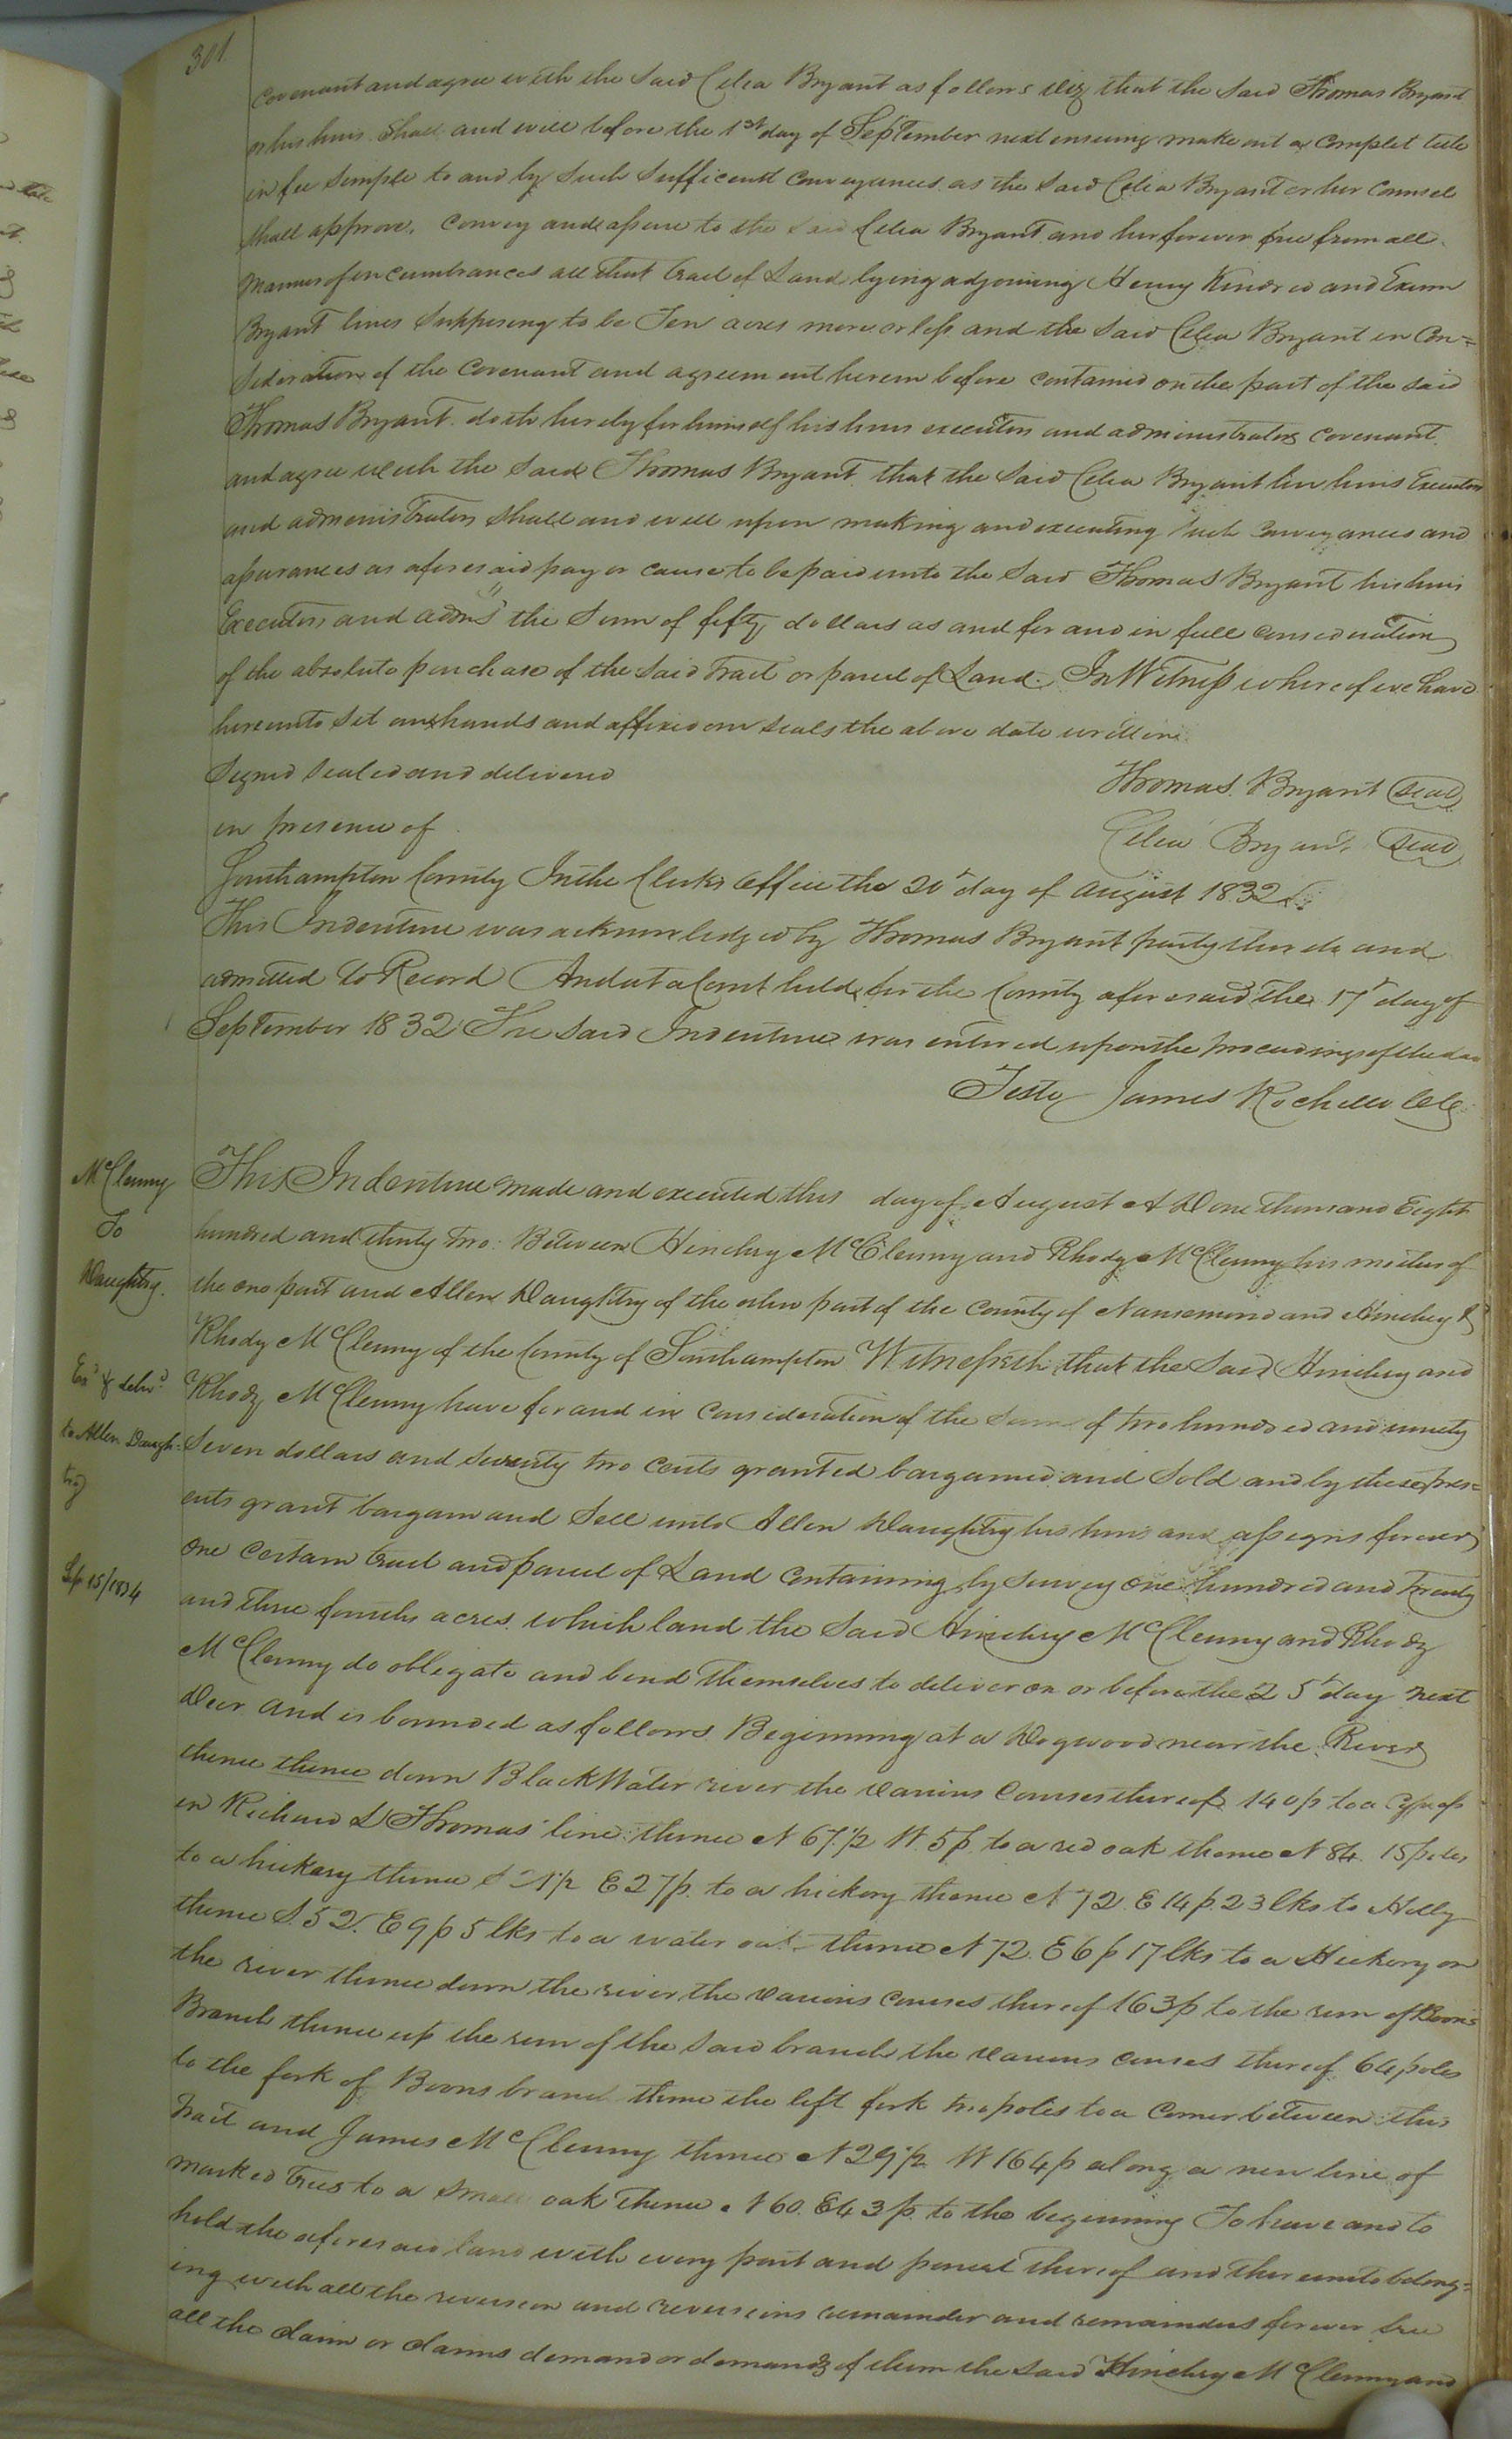 301.
covenant and agree with the Said Celia Bryant as follows viz that the Said Thomas Bryant
or his heirs Shall and will before the 1st day of September next ensuing make out a complet title
in fee Simple to and by Such Sufficent conveyances as the Said Celia Bryant or her Counsel
shall approve, convey and assure to the Said Celia Bryant and her forever free from all
manner of incumbrances all that tract of Land lying adjoining Henry Kindred and Exum
Bryant lines Supposing to be Ten acres more or less and the Said Celia Bryant in Con=
sideration of the Covenant and agreement herein before contained on the part of the said
Thomas Bryant doth hereby for himself his heirs executors and administrators covenant
and agree with the Said Thomas Bryant that the Said Celia Bryant her heirs Executors
and administrators shall and will upon making and executing such conveyances and
assurances as aforesaid pay or cause to be paid unto the Said Thomas Bryant his heirs
Executors and admrs the Sum of fifty dollars as and for and in full consideration
of the absolute purchase of the Said tract or parcel of Land. In Witness whereof we have
hereunto Set our hands and affixed our seals the above date written
Signed Sealed and delivered Thomas Bryant Seal
in presence of Celia Bryant Seal
Southampton County In the Clerks Office the 20th day of August 1832
This Indenture was acknowledged by Thomas Bryant party thereto and
admitted to Record And at a Court held for the County aforesaid the 17th day of
September 1832 The Said Indenture was entered upon the proceedings of the day
Teste James Rochelle CC
McClenny
To
Daughtry.
Exd & delivd
to Allen Daugh=
try
Sep 15/1834
This Indenture made and executed this day of August A D one thousand Eight
hundred and thirty two Between Hinchey McClenny and Rhody McClenny his mother of
the one part and Allen Daughtry of the other part of the County of Nansemond and Hinchey &
Rhody McClenny of the County of Southampton Witnesseth that the Said Hinchey and
Rhody McClenny have for and in consideration of the Sum of two hundred and ninety
Seven dollars and Seventy two cents granted bargained and Sold and by these pres=
ents grant bargain and Sell unto Allen Daughtry his heirs and assigns forever
one certain tract and parcel of Land containing by survey one hundred and twenty
and three fourths acres which land the Said Hinchey McClenny and Rhody
McClenny do obligate and bend themselves to deliver on or before the 25th day next
Decr and is bounded as follows Beginning at a Dogwood near the River
thence thence down BlackWater river the various Courses thereof 140p to a Cypress
in Richard D Thomas' line thence N 67½ W. 5p. to a red oak thence N 84. 15 poles
to a hickory thence E 27p. to a hickory thence N 72. E 14p. 23 lks to Holly
thence S. 52. E 9p 5 lks to a water oak thence N 72. E 6p 17 lks to a Hickory on
the river thence down the river the various courses thereof 163p to the run of Boons
Branch thence up the run of the said branch the various courses thereof 64 poles
to the fork of Boons branch thence the left fork two poles to a Corner between this
tract and James McClenny thence N 29½ W 164p along a new line of
marked trees to a small oak Thence N 60. E 43p. to the beginning To have and to
hold the aforesaid land with every part and parcel thereof and thereunto belong=
ing with all the reversion and reversions remainder and remainders forever free
all the claim or claims demand or demands of them the Said Hinchey McClenny and